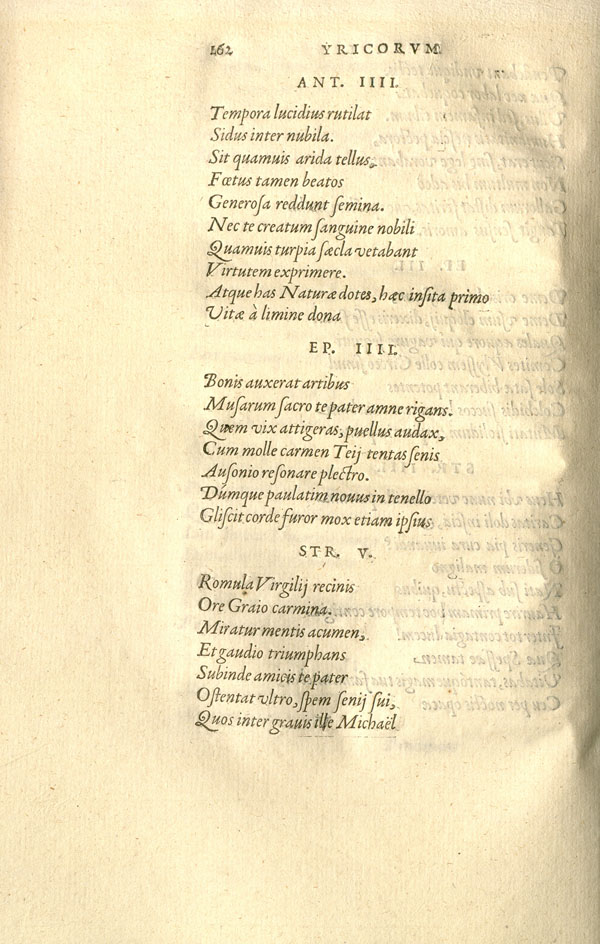 162 YRICORVM
ANT. IIII.
Tempora lucidius rutilat
Sidus inter nubila.
Sit quamuis arida tellus,
Fœtus tamen beatos
Generosa reddunt semina.
Nec te creatum sanguine nobili
Quamuis turpia sæcla vetabant
Virtutem exprimere.
Atque has Naturæ dotes, hæc insita primo
Vitæ à limine dona
EP. IIII.
Bonis auxerat artibus
Musarum sacro te pater amne rigans.
Quem vix attigeras, puellus audax,
Cum molle carmen Teij tentas senis
Ausonio resonare plectro.
Dumque paulatim nouus in tenello
Gliscit corde furor mox etiam ipsius
STR. V.
Romula Virgilij recinis
Ore Graio carmina.
Miratur mentis acumen,
Et gaudio triumphans
Subinde amicis te pater
Ostentat vltro, spem senij sui,
Quos inter grauis ille Michaël